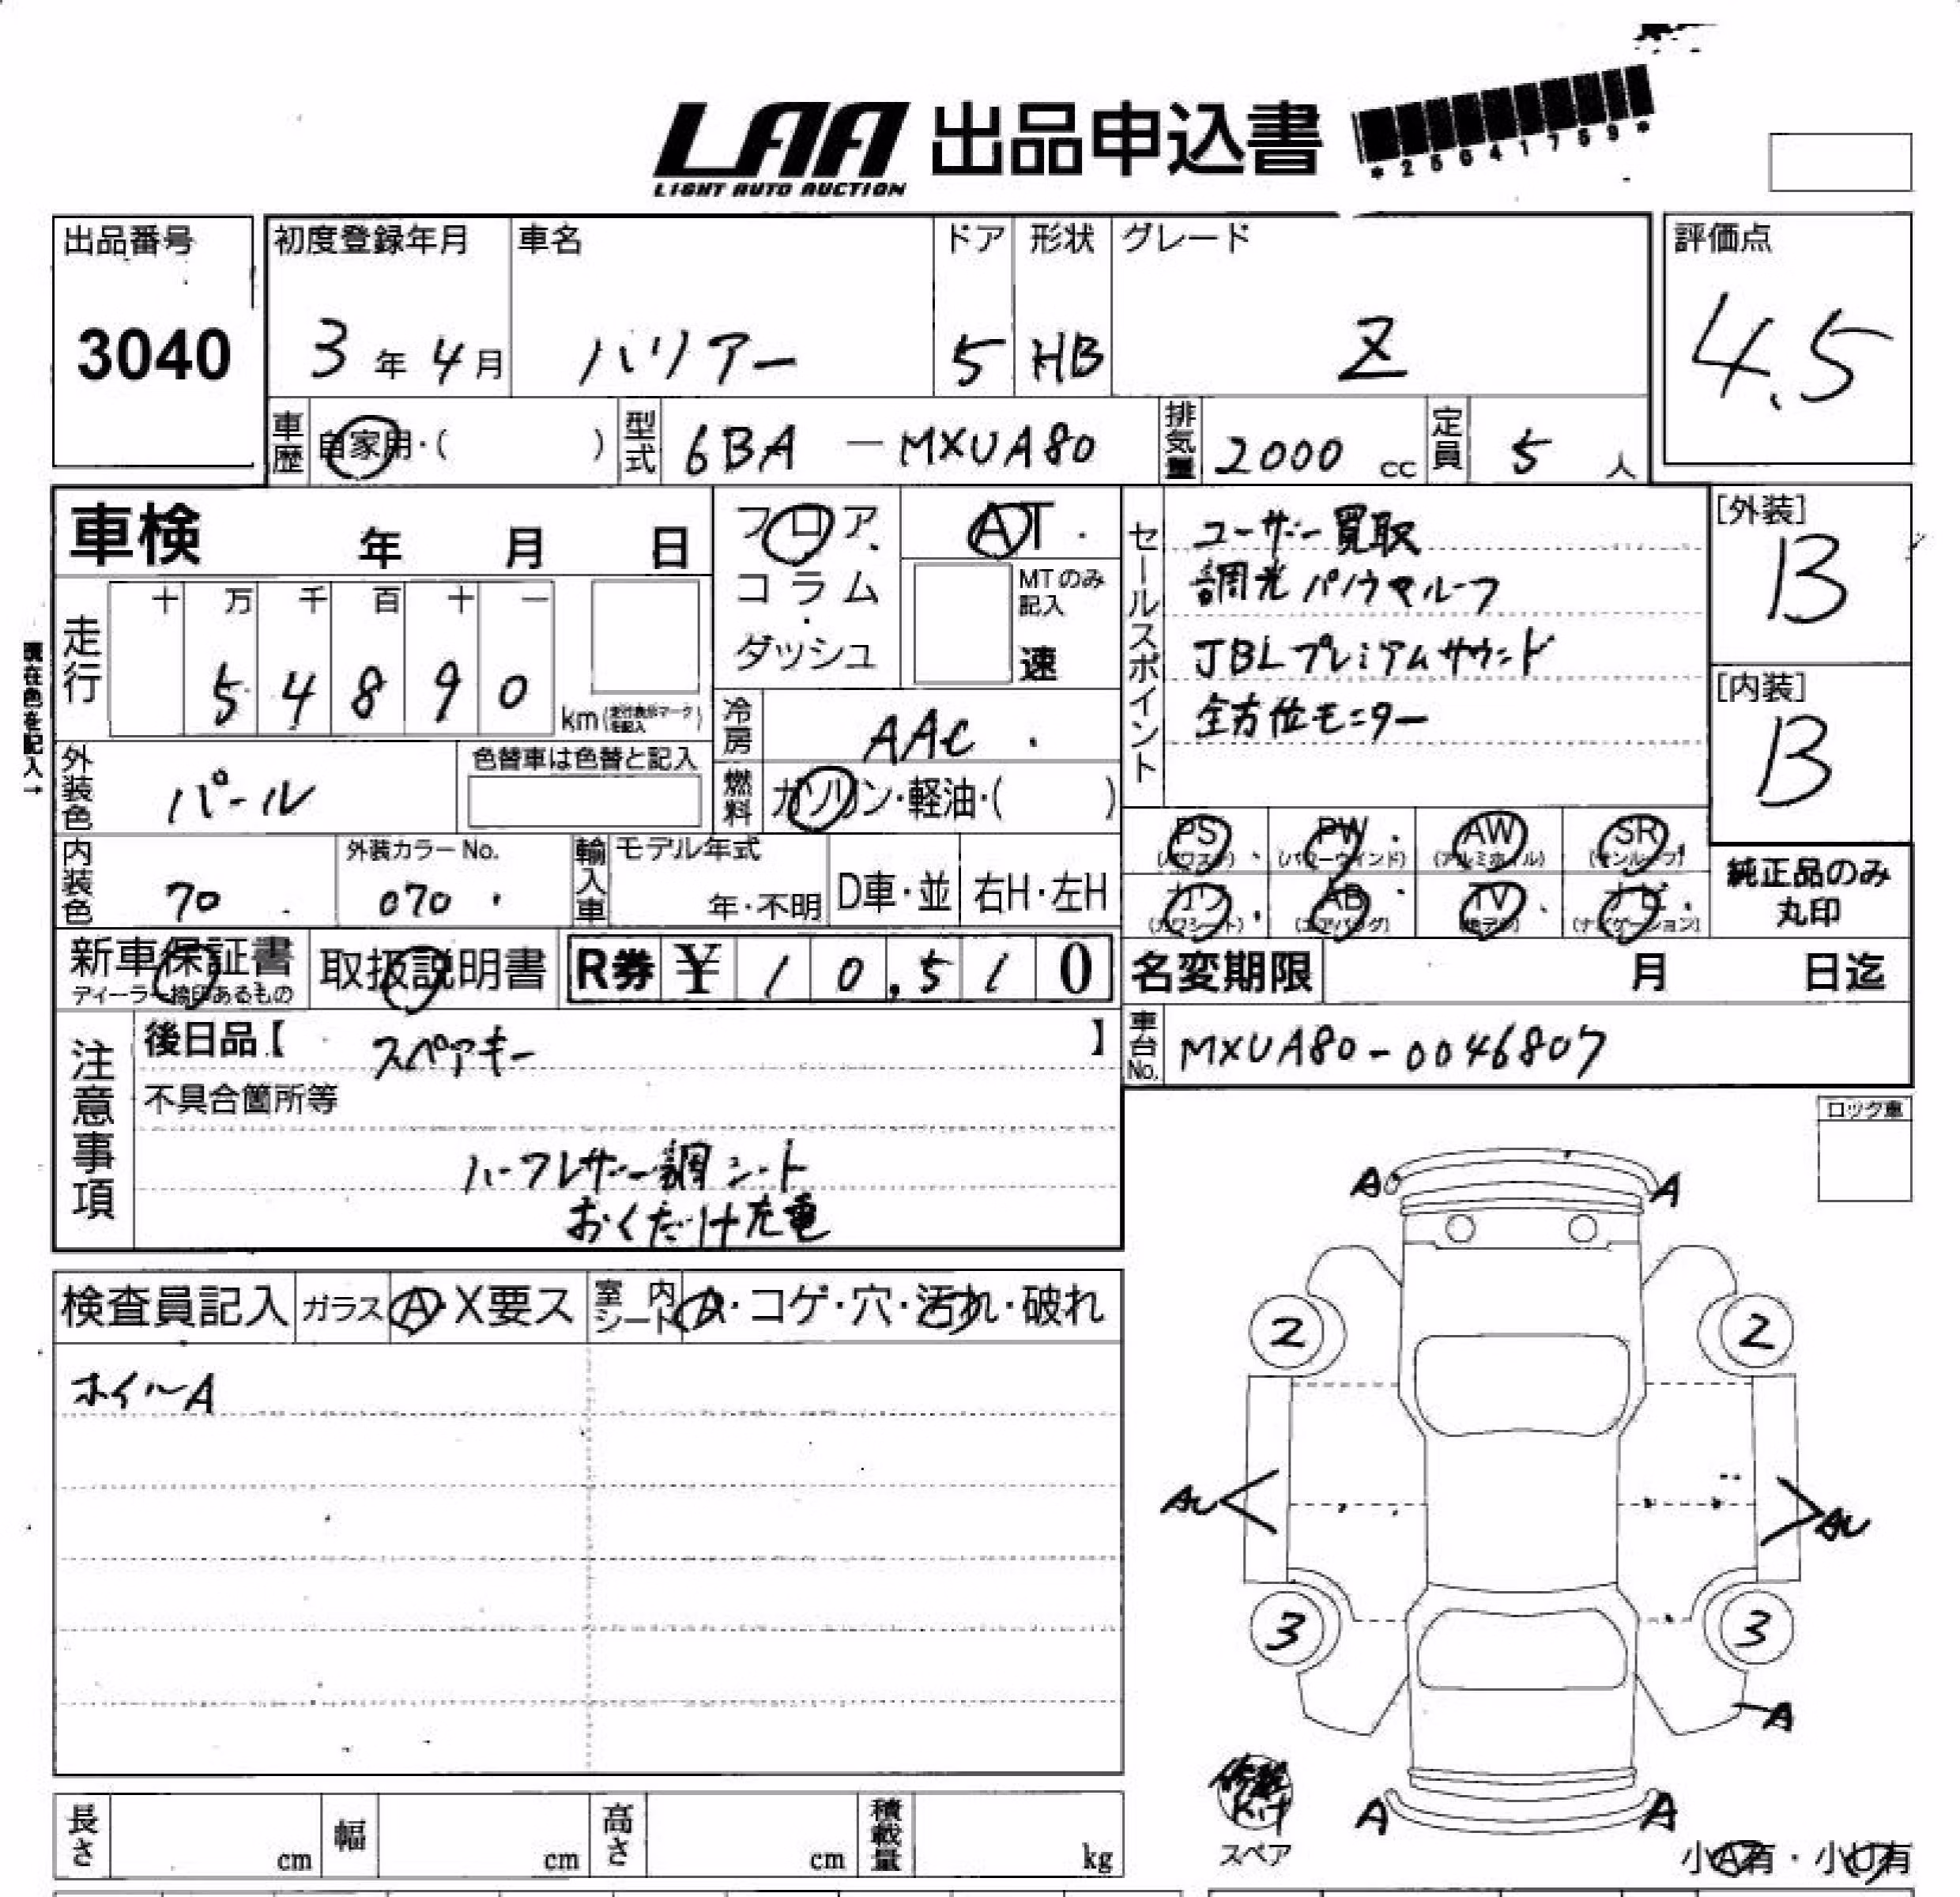 LAA 出品申込書
LIGHT AUTO AUCTION
*25041759*
出品番号 初度登録年月 車名 ドア 形状 グレード 評価点
3040 3年4月 ハリアー 5 HB Z 4.5
車歴 自家用・( ) 型式 6BA - MXUA80 排気量 2000 cc 定員 5 人
車検 年 月 日
フロア・コラム・ダッシュ
AT
MTのみ記入
速
走行 十 万 千 百 十 一
5 4 8 9 0 km
現在色を記入→
冷房 AAC
外装色 パール 色替車は色替と記入
燃料 ガソリン・軽油・( )
内装色 70 外装カラーNo. 070 輸入車 モデル年式 年・不明 D車・並 右H・左H
セールスポイント
ユーザー買取
調光パノラマルーフ
JBLプレミアムサウンド
全方位モニター
[外装]
B
[内装]
B
PS (パワステ) PW (パワーウインド) AW (アルミホイル) SR (サンルーフ)
カワ (カワシート) AB (エアバッグ) TV (テレビ) ナビ (ナビゲーション)
純正品のみ
丸印
新車保証書 取扱説明書 R券 ¥ 1 0,5 1 0
ディーラー捺印あるもの
名変期限 月 日迄
車台No. MXUA80-0046807
注意事項
後日品【 スペアキー 】
不具合箇所等
ハーフレザー調シート
おくだけ充電
ロック車
検査員記入 ガラス A・X要ス 室内シート A・コゲ・穴・汚れ・破れ
ホイールA
A A
2 2
AU AU
3 3
A
A A
修理Kit
スペア
小A有・小U有
長さ cm 幅 cm 高さ cm 積載量 kg